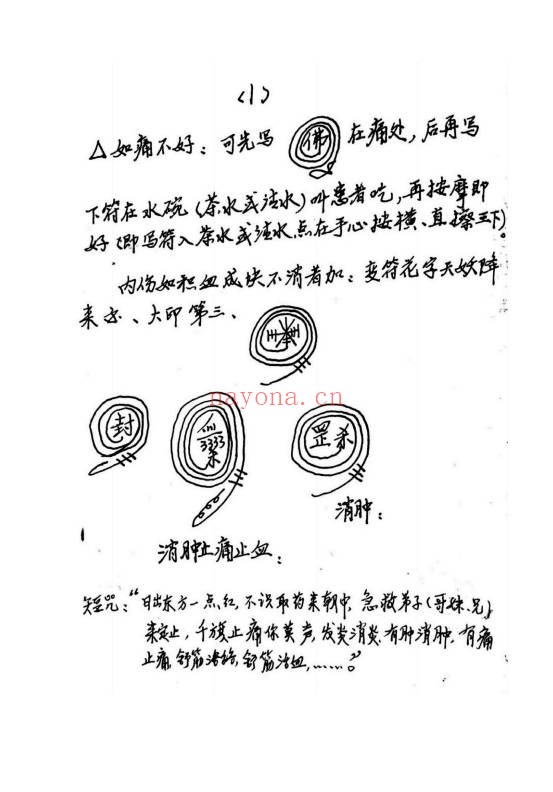 <1>
△如痛不好：可先写 佛 在痛处，后再写
下符在水碗（茶水或法水）叫患者吃，再按摩即
好（即写符入茶水或法水点在手心按横、直擦三下）。
内伤如积血成块不消者加：变符花字天妖降
来、大印第三、
nayona.cn
封
3333
罡杀
消肿：
消肿止痛止血：
短咒：“日出东方一点红，不识取药来朝中，急救弟子（哥妹、兄）
来定止，千旗止痛你莫声，发炎消炎，有肿消肿，有痛
止痛，舒筋活络，舒筋活血，……。”